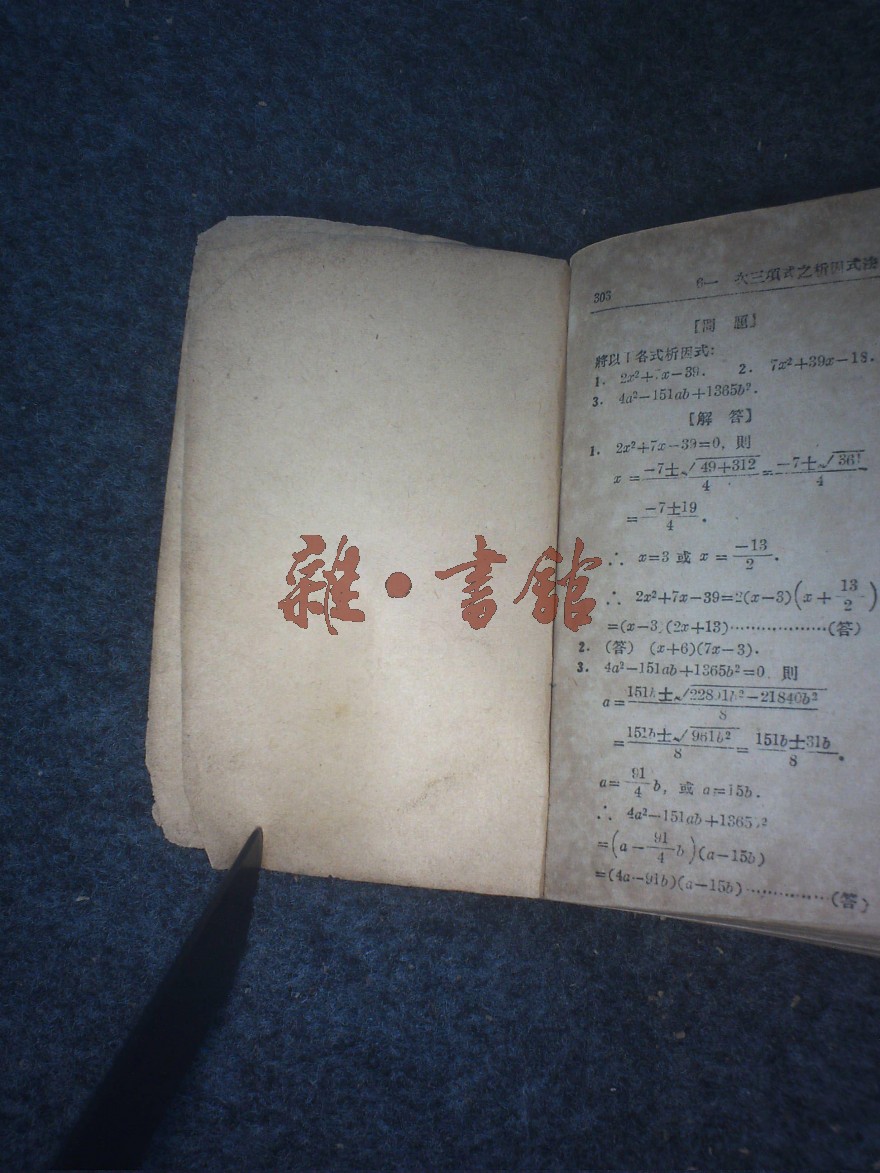 雜·書館
303 6— 次三項式之析因式法
[問 題]
將以下各式析因式:
1. 2x²+7x-39. 2. 7x²+39x-18.
3. 4a²-151ab+1365b².
[解 答]
1. 2x²+7x-39=0, 則
x = (-7±√(49+312))/4 = (-7±√361)/4
= (-7±19)/4.
∴ x=3 或 x = -13/2.
∴ 2x²+7x-39=2(x-3)(x+13/2)
=(x-3)(2x+13)··················(答)
2. (答) (x+6)(7x-3).
3. 4a²-151ab+1365b²=0, 則
a = (151b±√(22801b²-21840b²))/8
= (151b±√(961b²))/8 = (151b±31b)/8.
a = 91/4 b, 或 a=15b.
∴ 4a²-151ab+1365b²
=(a-91/4 b)(a-15b)
=(4a-91b)(a-15b)···············(答)